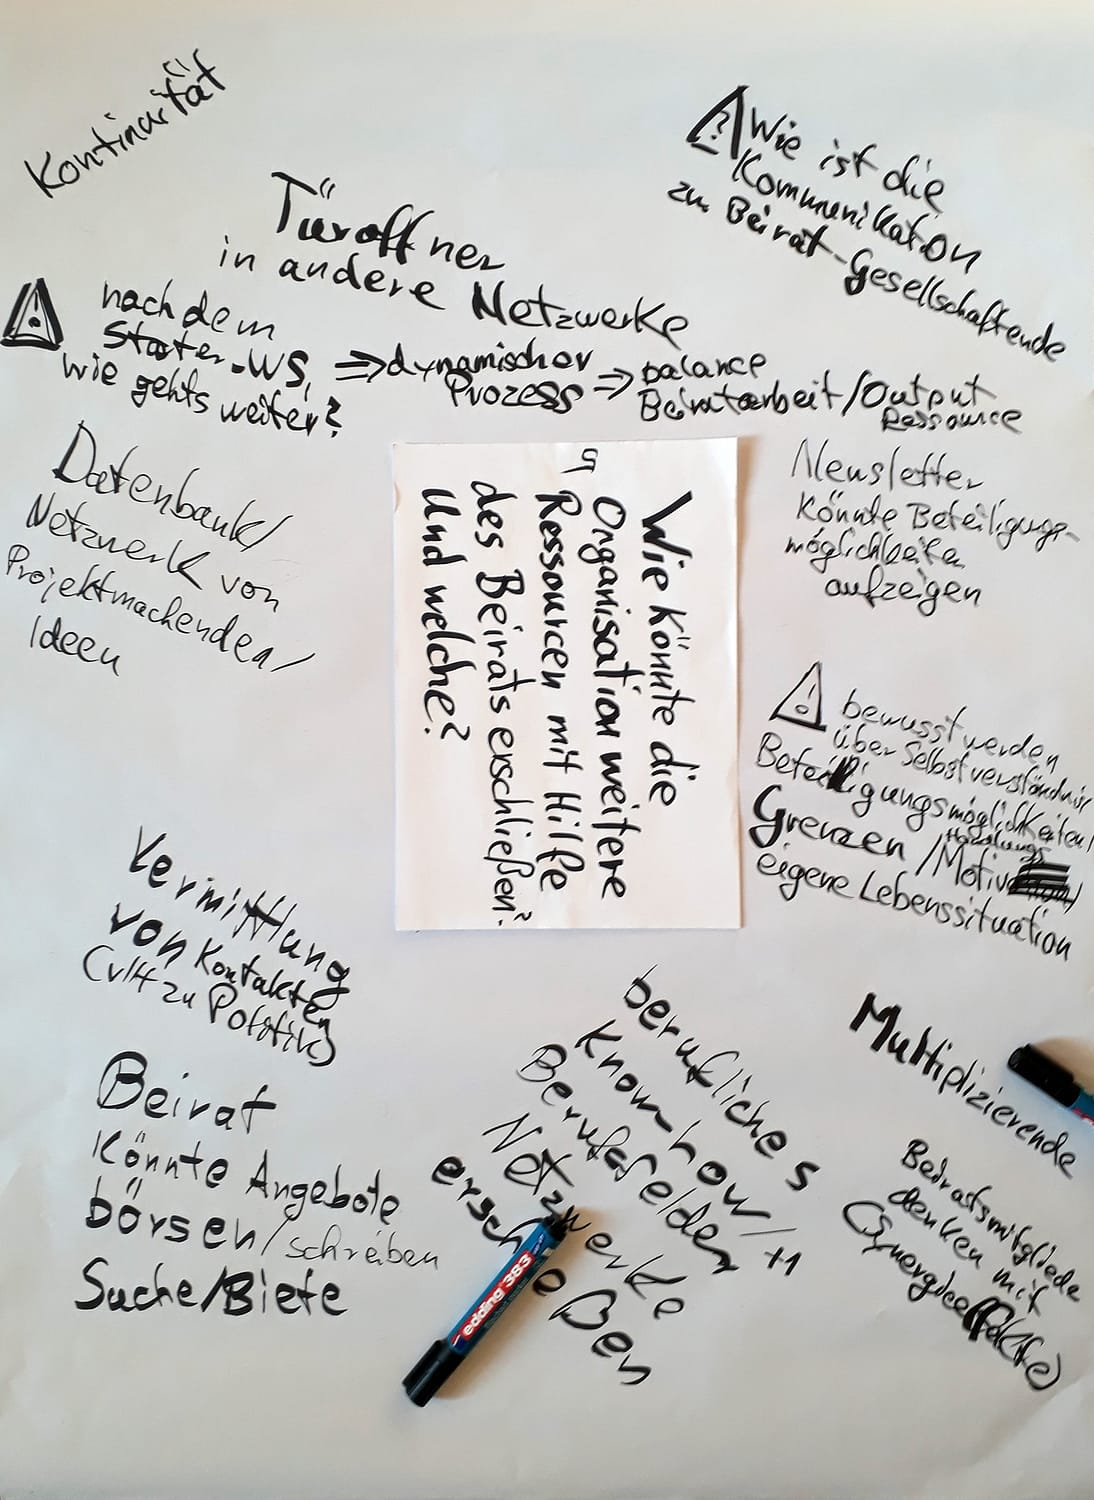 Kontinuität
Türöffner
in andere Netzwerke
? Wie ist die
Kommunikation
zu Beirat-Gesellschaftende
! nach dem
Starter-WS,
wie gehts weiter?
⇒ dynamischer
Prozess
⇒ balance
Beiratarbeit/Output
Ressource
Datenbank/
Netzwerk von
Projektmachenden/
Ideen
5
Wie könnte die
Organisation weitere
Ressourcen mit Hilfe
des Beirats erschließen?
Und welche?
Newsletter
könnte Beteiligungs-
möglichkeiten
aufzeigen
! bewusst werden
über Selbstverständnis
Beteiligungsmöglichkeiten/
Grenzen/Handlungs
Motiv
eigene Lebenssituation
Vermittlung
von Kontakten
(vllt zu Politik)
Beirat
könnte Angebote
börsen/schreiben
Suche/Biete
berufliches
Know-how/+1
Berufsfelder
Netzwerke
erschließen
edding 383
Multiplizierende
Beiratsmitgliede
denken mit
(Synergieeffekte)